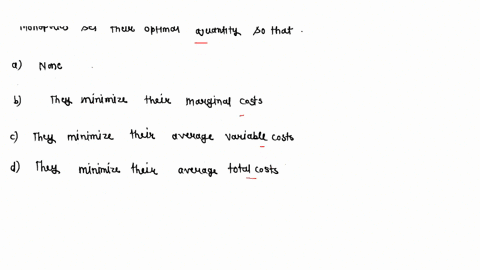 set their optimal quantity so that .
a) None
b) They minimize their marginal costs
c) They minimize their average variable costs
d) They minimize their average total costs